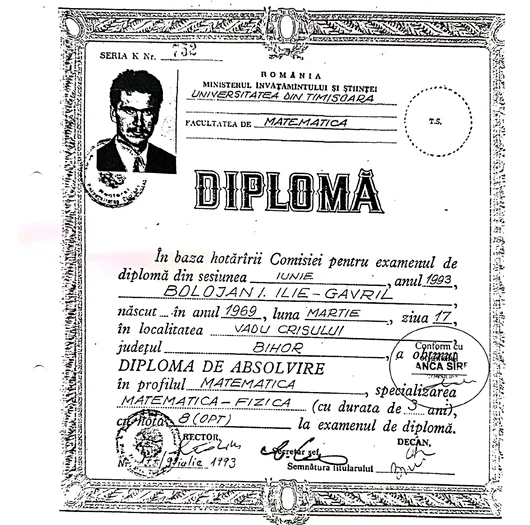 SERIA K Nr. 732
ROMÂNIA
MINISTERUL INVĂŢĂMÎNTULUI ŞI ŞTIINŢEI
UNIVERSITATEA DIN TIMISOARA
FACULTATEA DE MATEMATICA
T.S.
DIPLOMĂ
În baza hotărîrii Comisiei pentru examenul de
diplomă din sesiunea IUNIE, anul 1993,
BOLOJAN I. ILIE-GAVRIL,
născut în anul 1969, luna MARTIE, ziua 17,
în localitatea VADU CRISULUI,
judeţul BIHOR, a obţinut
Conform cu
ANCA SÎRB
DIPLOMA DE ABSOLVIRE
în profilul MATEMATICA, specializarea
MATEMATICA-FIZICA (cu durata de 3 ani),
cu nota 8 (OPT) la examenul de diplomă.
RECTOR,
Secretar şef,
DECAN,
Nr. iulie 1993
Semnătura titularului